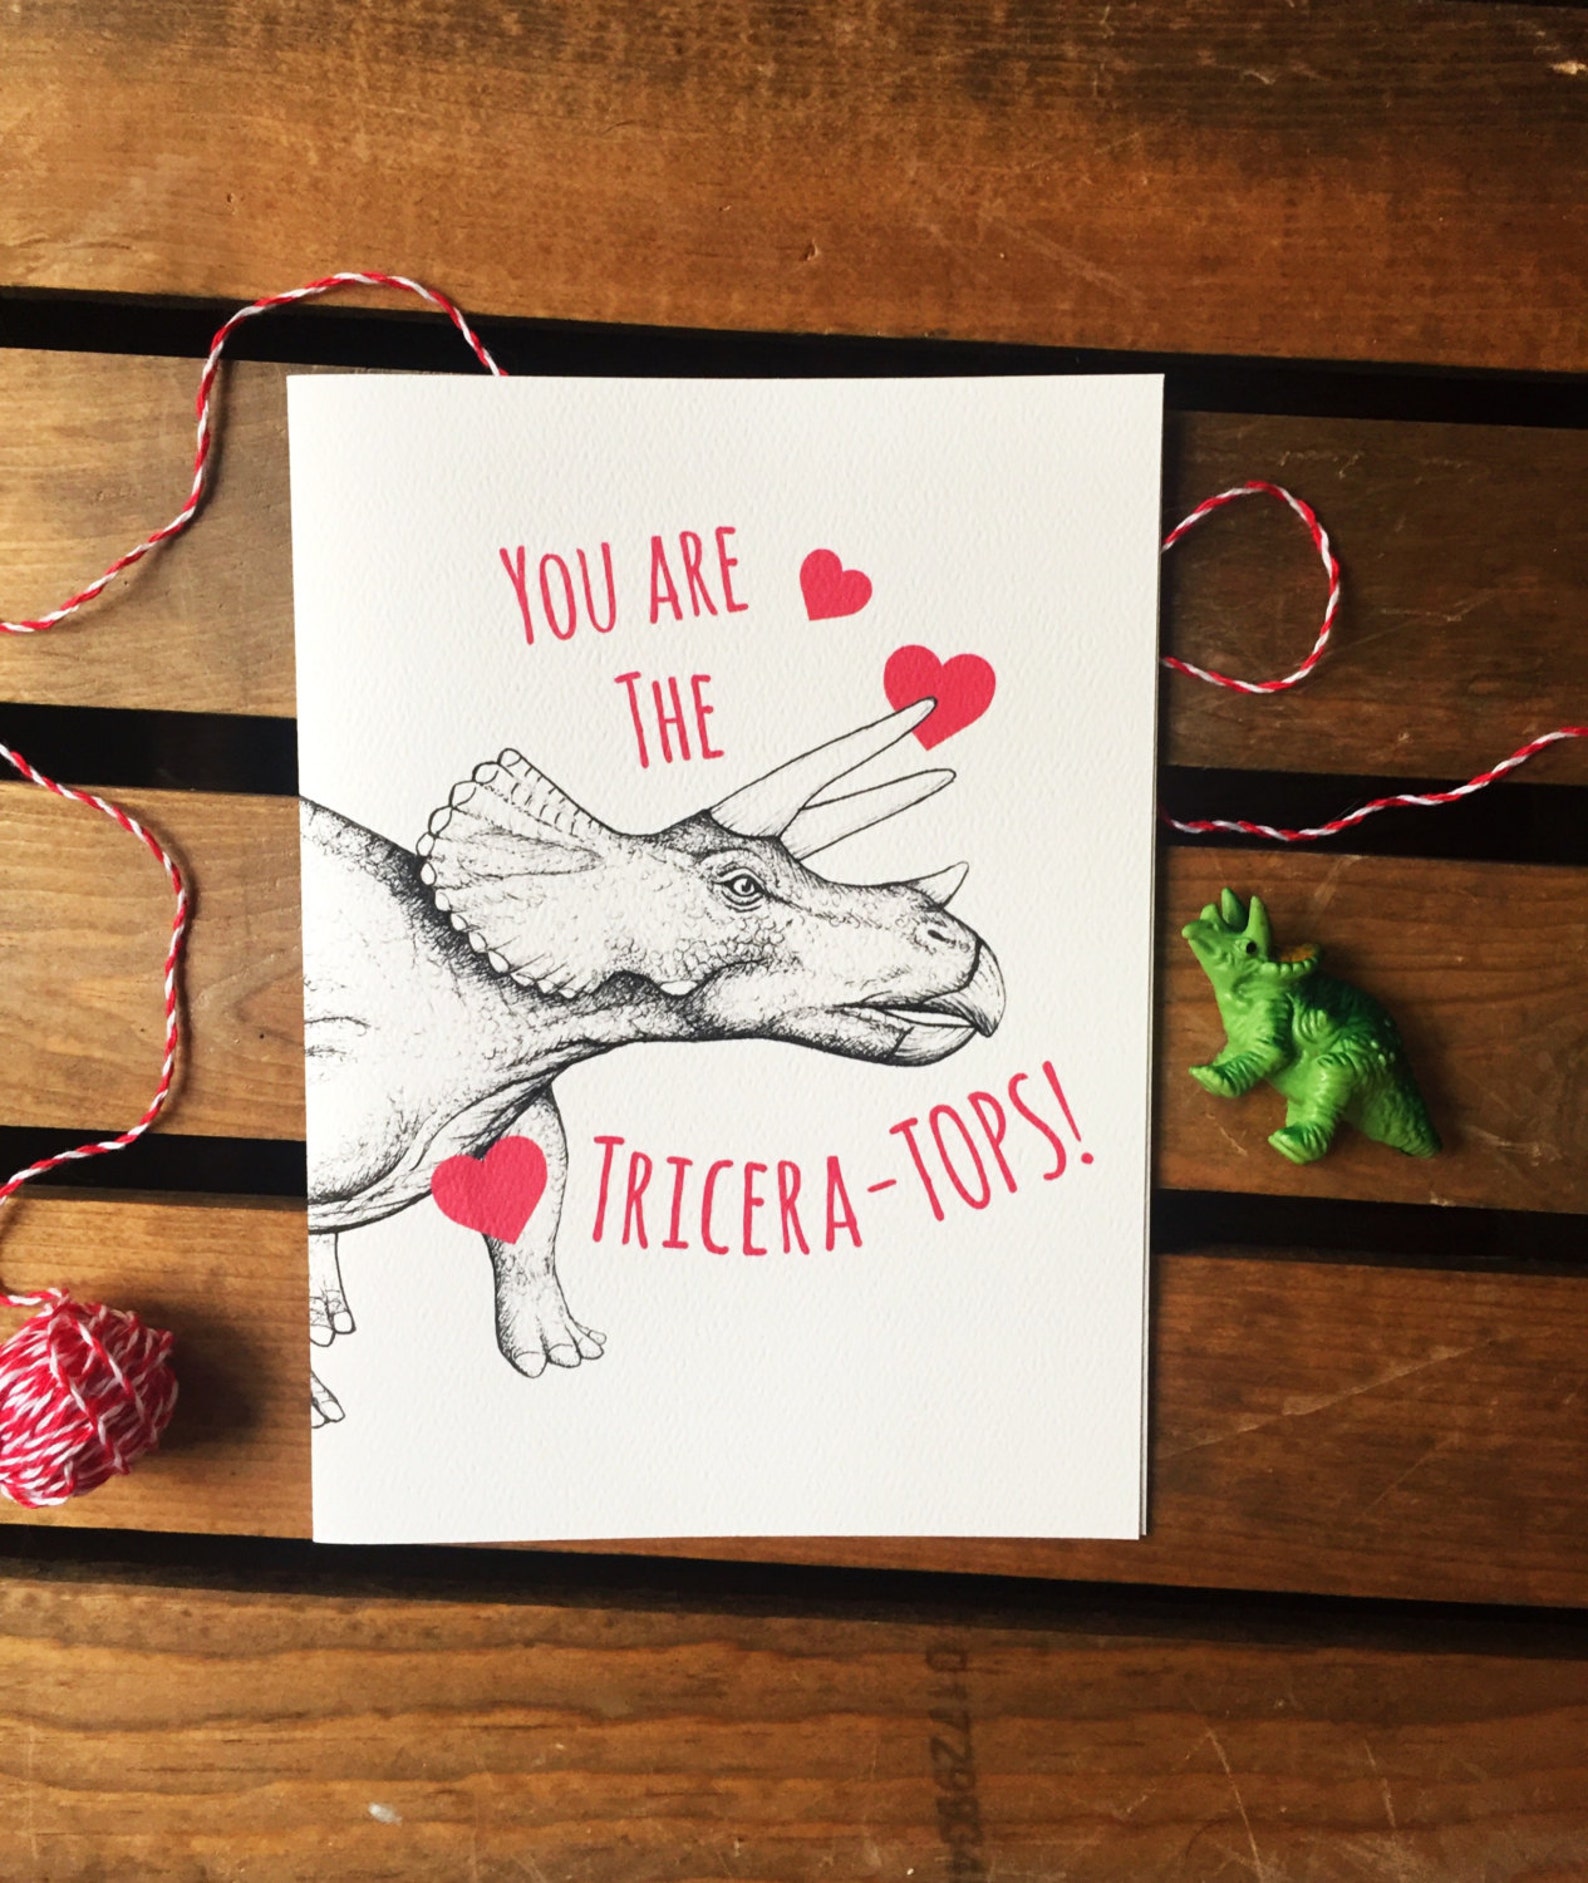 You are
The
Tricera-TOPS!